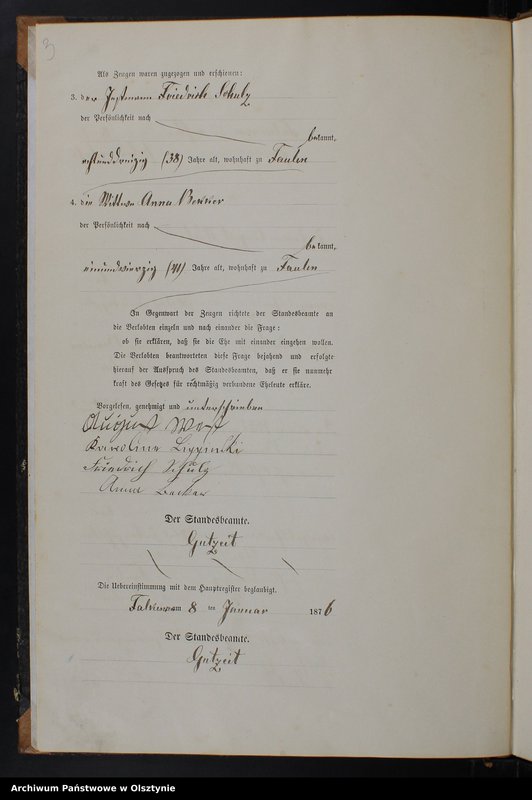 3
Als Zeugen waren zugezogen und erschienen:
3. der Instmann Friedrich Schulz
der Persönlichkeit nach
bekannt,
achtunddreizig (38) Jahre alt, wohnhaft zu Faulen
4. die Wittwe Anna Becker
der Persönlichkeit nach
bekannt,
einundvierzig (41) Jahre alt, wohnhaft zu Faulen
In Gegenwart der Zeugen richtete der Standesbeamte an
die Verlobten einzeln und nach einander die Frage:
ob sie erklären, daß sie die Ehe mit einander eingehen wollen.
Die Verlobten beantworteten diese Frage bejahend und erfolgte
hierauf der Ausspruch des Standesbeamten, daß er sie nunmehr
kraft des Gesetzes für rechtmäßig verbundene Eheleute erkläre.
Vorgelesen, genehmigt und unterschrieben
August
Karoline Lippinski
Friedrich Schulz
Anna Becker
Der Standesbeamte.
Gutzeit
Die Uebereinstimmung mit dem Hauptregister beglaubigt.
am 8 ten Januar 1876
Der Standesbeamte.
Gutzeit
Archiwum Państwowe w Olsztynie